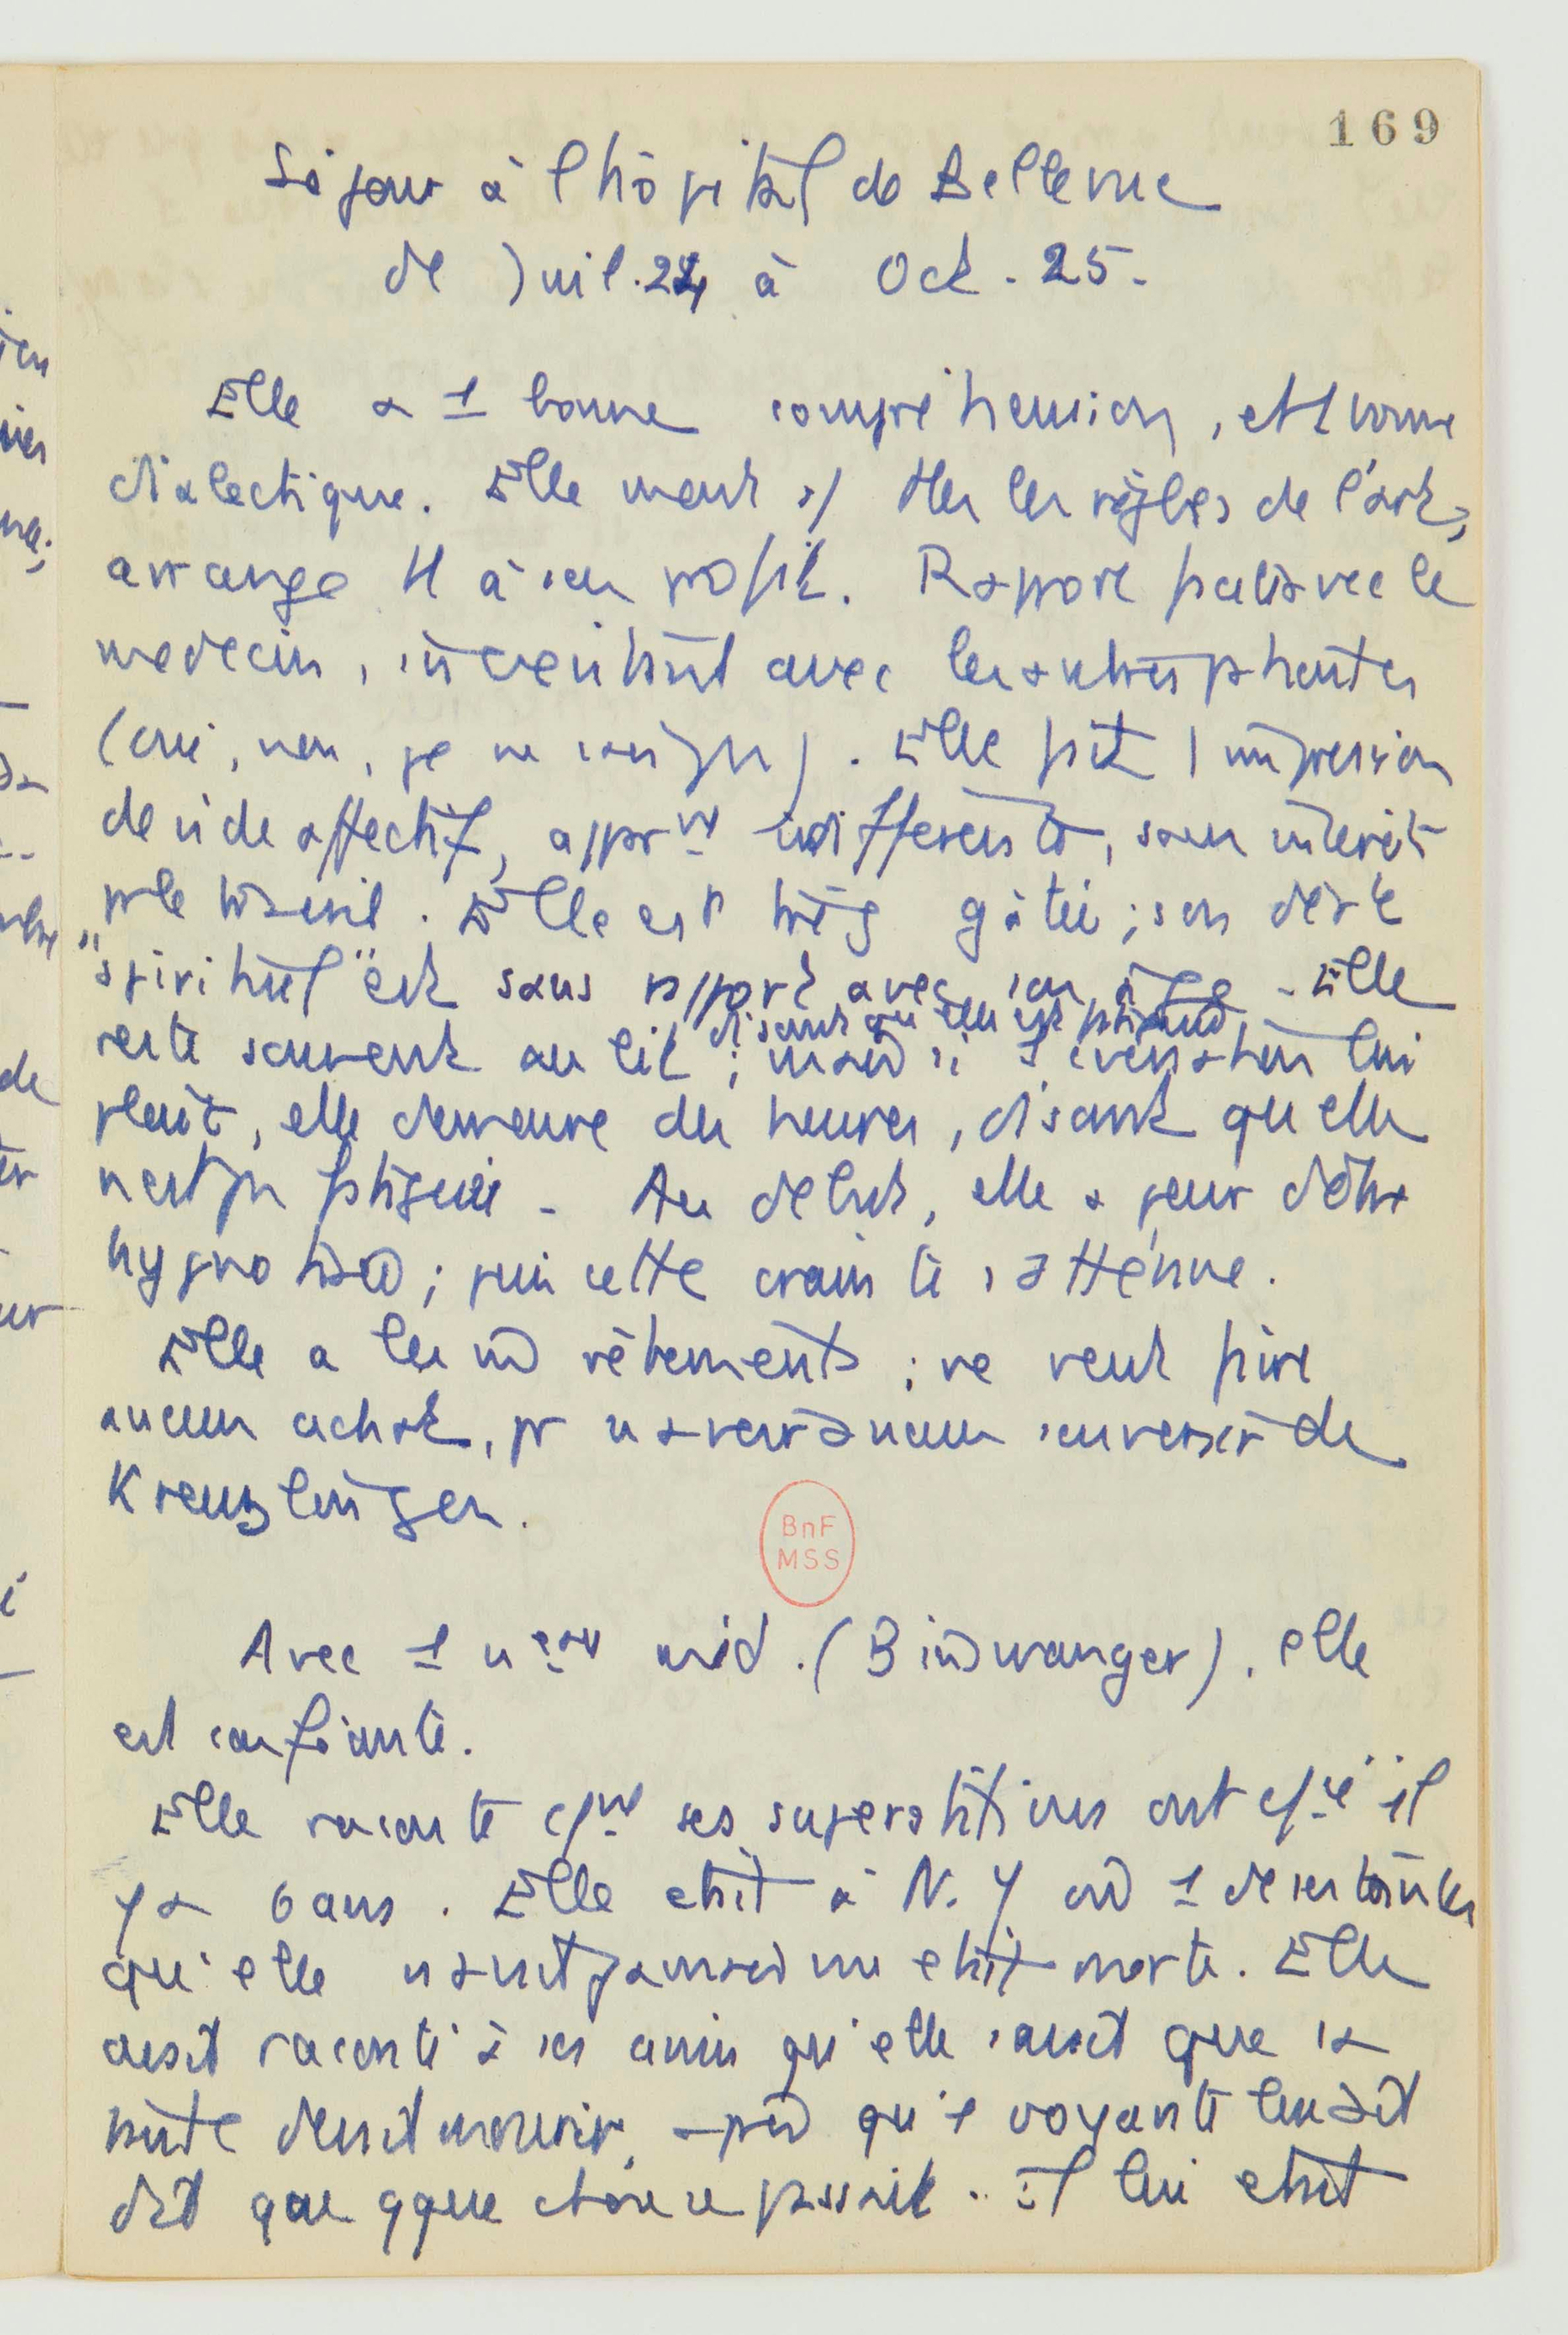 169
Séjour à l'hôpital de Bellevue
de Juil. 24 à Oct. 25.
Elle a 1 bonne compréhension, et 1 bonne
dialectique. Elle ment s/ ttes les règles de l'art,
arrange tt à son profit. Rapport facile avec le
médecin, avec les autres patientes
(oui, non, je ne sais pas). Elle fait l'impression
de vide affectif, appar^nt indifférente, sans intérêt
pr le travail. Elle est très gâtée ; son désir
"spirituel" est sans rapport avec son âge. Elle
disant qu'elle est fatiguée
reste souvent au lit ; mais si 1 conversation lui
plaît, elle demeure des heures, disant qu'elle
n'est pas fatiguée. Au début, elle a peur d'être
hypnotisée ; puis cette crainte s'atténue.
Elle a les vêtements ; ne veut faire
aucun achat, pr n'avoir aucun souvenir de
Kreuzlingen.
BnF
MSS
Avec 1 nveau méd. (Binswanger), elle
est confiante.
Elle raconte cmnt ses superstitions ont cmcé il
y a 6 ans. Elle était à N.Y où 1 de ses tantes
qu'elle n'avait jamais vue était morte. Elle
avait raconté à ses amis qu'elle savait que sa
tante devait mourir, après qu'1 voyante leur ait
dit que qque chose se passait. Il lui était